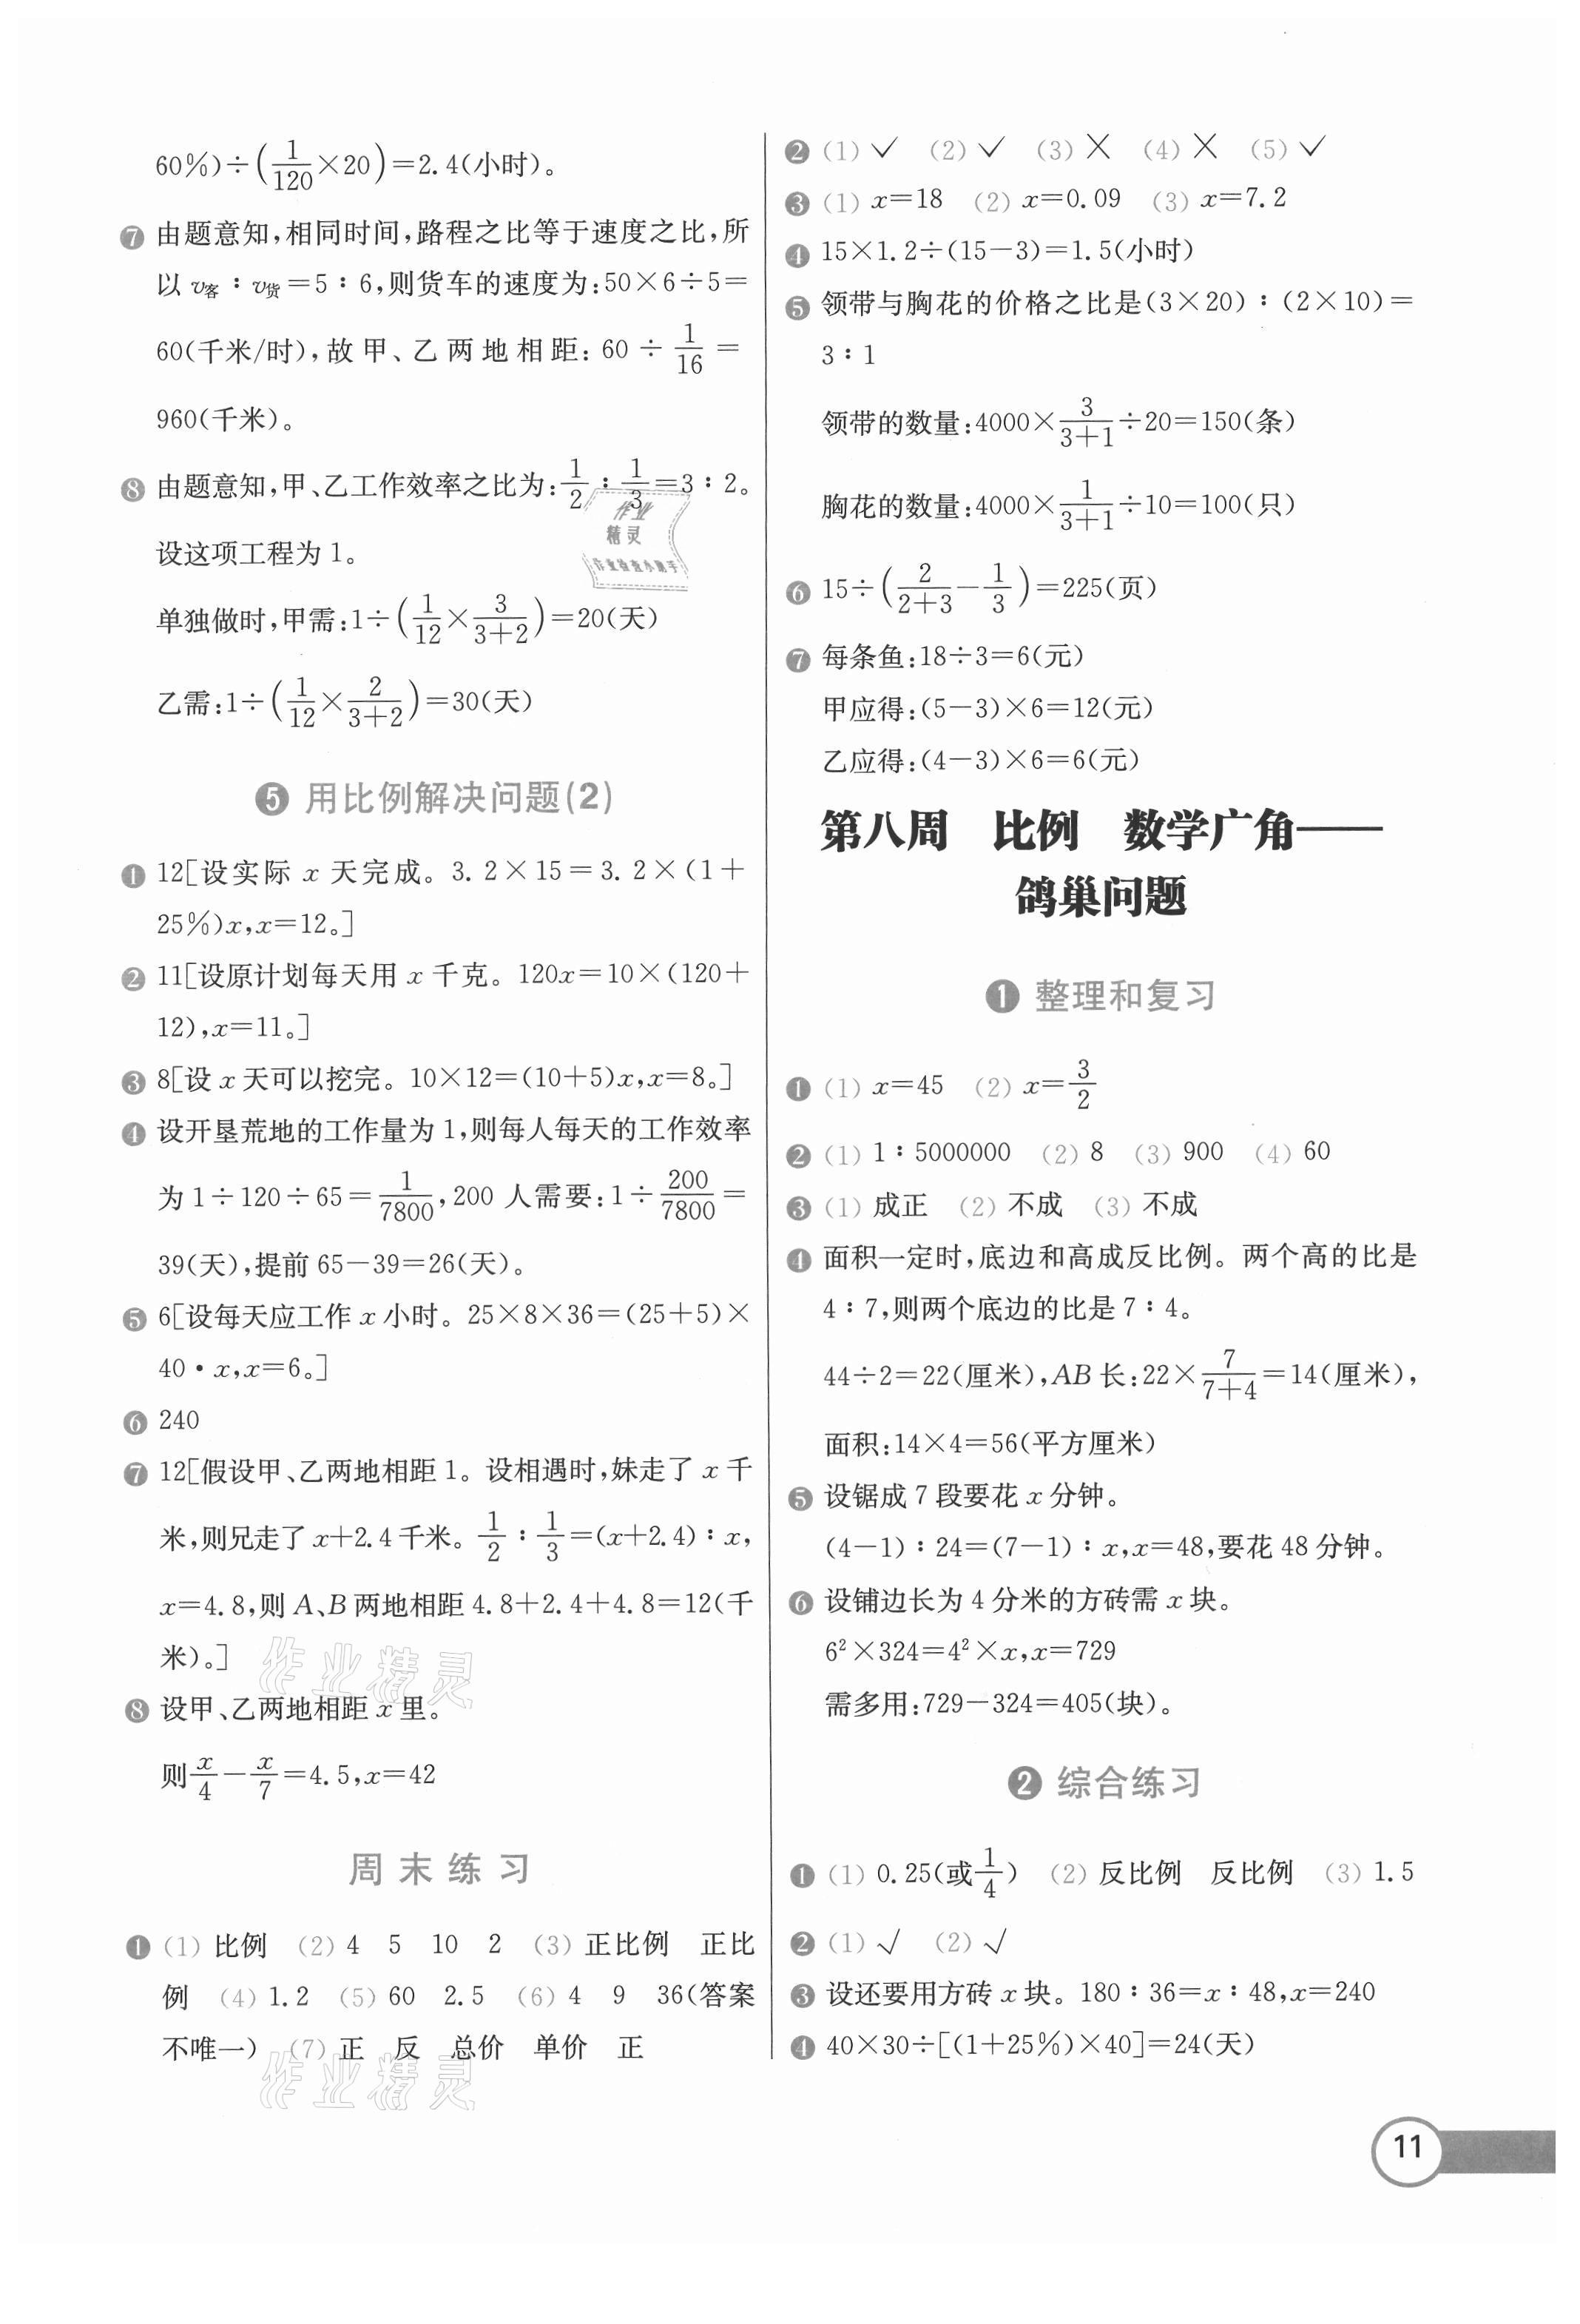 60%)÷(1/120×20)=2.4(小时)。
❼ 由题意知,相同时间,路程之比等于速度之比,所
以 v客∶v货=5∶6,则货车的速度为:50×6÷5=
60(千米/时),故甲、乙两地相距:60÷1/16=
960(千米)。
❽ 由题意知,甲、乙工作效率之比为:1/2∶1/3=3∶2。
设这项工程为 1。
单独做时,甲需:1÷(1/12×3/(3+2))=20(天)
乙需:1÷(1/12×2/(3+2))=30(天)
❺ 用比例解决问题(2)
❶ 12[设实际 x 天完成。3.2×15=3.2×(1+
25%)x,x=12。]
❷ 11[设原计划每天用 x 千克。120x=10×(120+
12),x=11。]
❸ 8[设 x 天可以挖完。10×12=(10+5)x,x=8。]
❹ 设开垦荒地的工作量为 1,则每人每天的工作效率
为 1÷120÷65=1/7800,200 人需要:1÷200/7800=
39(天),提前 65-39=26(天)。
❺ 6[设每天应工作 x 小时。25×8×36=(25+5)×
40·x,x=6。]
❻ 240
❼ 12[假设甲、乙两地相距 1。设相遇时,妹走了 x 千
米,则兄走了 x+2.4 千米。1/2∶1/3=(x+2.4)∶x,
x=4.8,则 A、B 两地相距 4.8+2.4+4.8=12(千
米)。]
❽ 设甲、乙两地相距 x 里。
则x/4-x/7=4.5,x=42
周末练习
❶ (1) 比例 (2) 4 5 10 2 (3) 正比例 正比
例 (4) 1.2 (5) 60 2.5 (6) 4 9 36(答案
不唯一) (7) 正 反 总价 单价 正
❷ (1) ✓ (2) ✓ (3) ✕ (4) ✕ (5) ✓
❸ (1) x=18 (2) x=0.09 (3) x=7.2
❹ 15×1.2÷(15-3)=1.5(小时)
❺ 领带与胸花的价格之比是(3×20)∶(2×10)=
3∶1
领带的数量:4000×3/(3+1)÷20=150(条)
胸花的数量:4000×1/(3+1)÷10=100(只)
❻ 15÷(2/(2+3)-1/3)=225(页)
❼ 每条鱼:18÷3=6(元)
甲应得:(5-3)×6=12(元)
乙应得:(4-3)×6=6(元)
第八周 比例 数学广角——
鸽巢问题
❶ 整理和复习
❶ (1) x=45 (2) x=3/2
❷ (1) 1∶5000000 (2) 8 (3) 900 (4) 60
❸ (1) 成正 (2) 不成 (3) 不成
❹ 面积一定时,底边和高成反比例。两个高的比是
4∶7,则两个底边的比是 7∶4。
44÷2=22(厘米),AB 长:22×7/(7+4)=14(厘米),
面积:14×4=56(平方厘米)
❺ 设锯成 7 段要花 x 分钟。
(4-1)∶24=(7-1)∶x,x=48,要花 48 分钟。
❻ 设铺边长为 4 分米的方砖需 x 块。
6²×324=4²×x,x=729
需多用:729-324=405(块)。
❷ 综合练习
❶ (1) 0.25(或1/4) (2) 反比例 反比例 (3) 1.5
❷ (1) √ (2) √
❸ 设还要用方砖 x 块。180∶36=x∶48,x=240
❹ 40×30÷[(1+25%)×40]=24(天)
11
作业
精灵
作业检查小助手
作业精灵
作业精灵